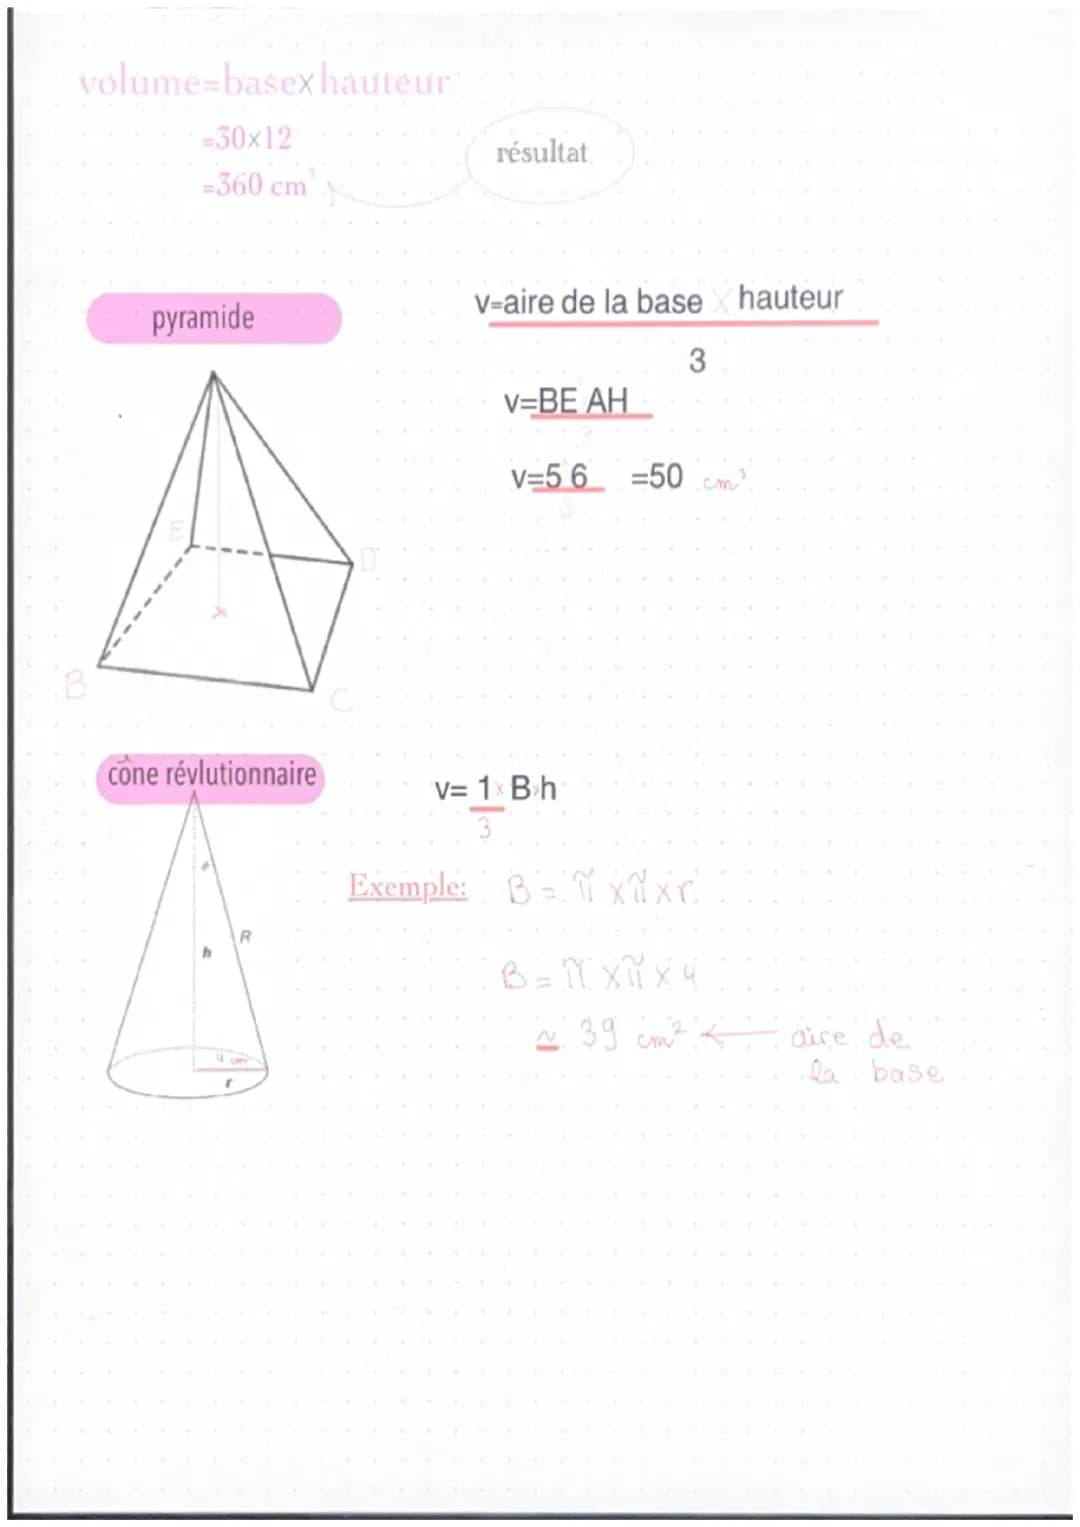 volume=base×hauteur
=30×12
=360 cm³
résultat
pyramide
v=aire de la base × hauteur
3
v=BE AH
3
v=5 6 =50 cm³
3
E
D
B
C
cône révlutionnaire
v= 1 × B×h
3
Exemple: B = π × π × r
B = π × π × 4
≃ 39 cm² ← aire de
la base
R
h
4 cm
r